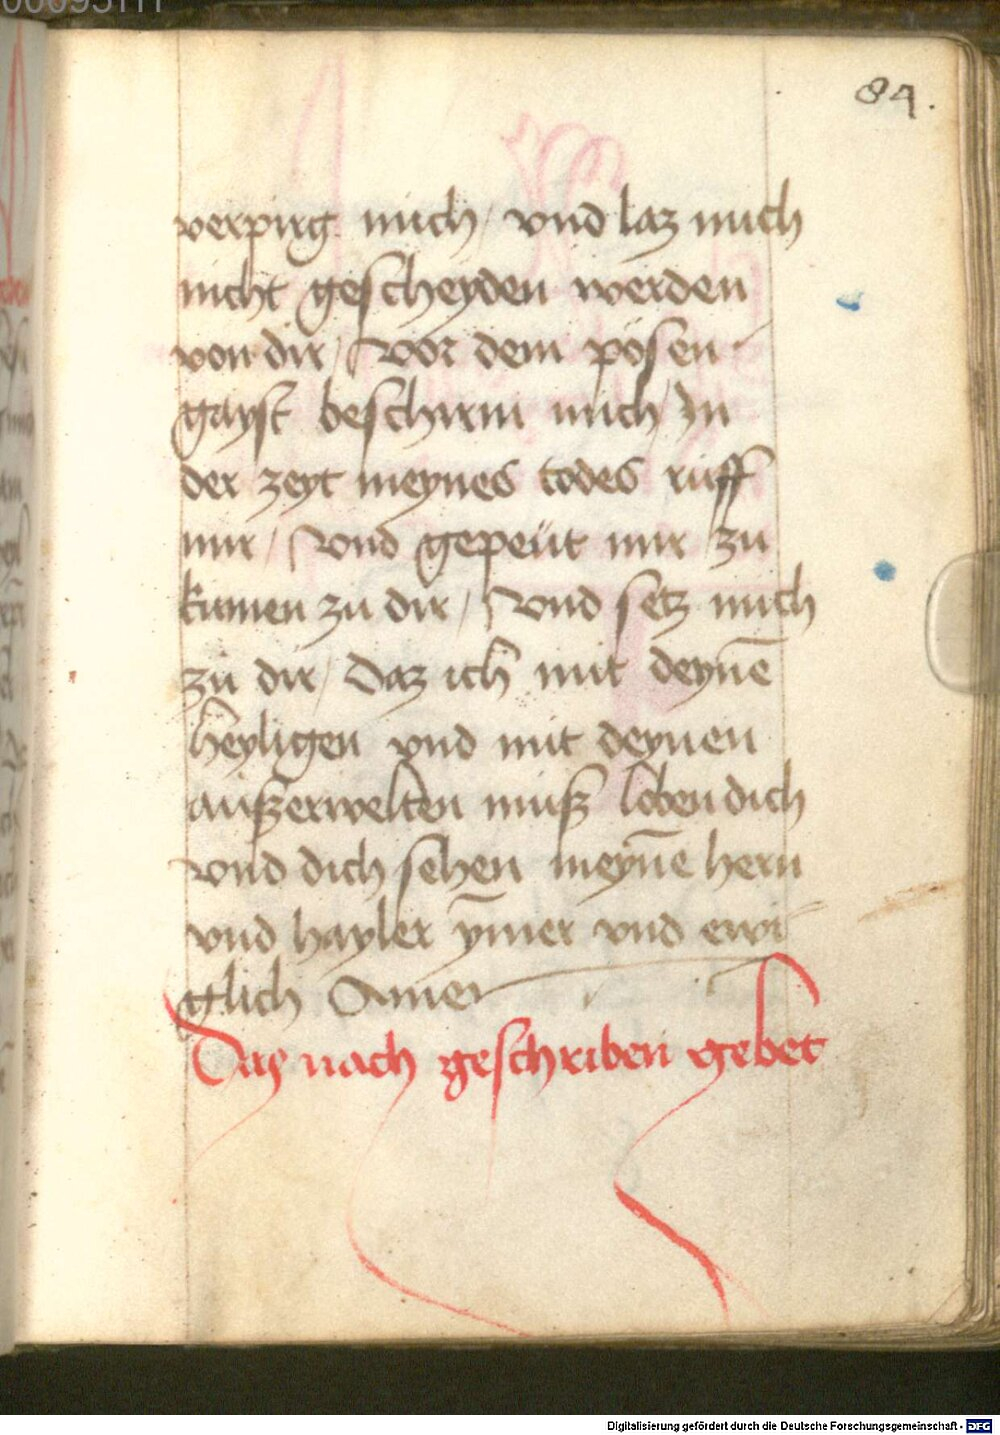 84.
verpirg mich / vnd laz mich
nicht gescheyden werden
von dir / Vor dem pösen
gayst beschirm mich / In
der zeyt meynes todes rüff
mir / Vnd gepeüt mir zu
kumen zu dir / Vnd setz mich
zu dir / Daz ich mit deynē
heyligen vnd mit deynen
außerwelten muß loben dich
vnd dich sehen meynē hern
vnd hayler ym̄er vnd ewi
glich Amen
Das nach geschriben gebet
Digitalisierung gefördert durch die Deutsche Forschungsgemeinschaft - DFG